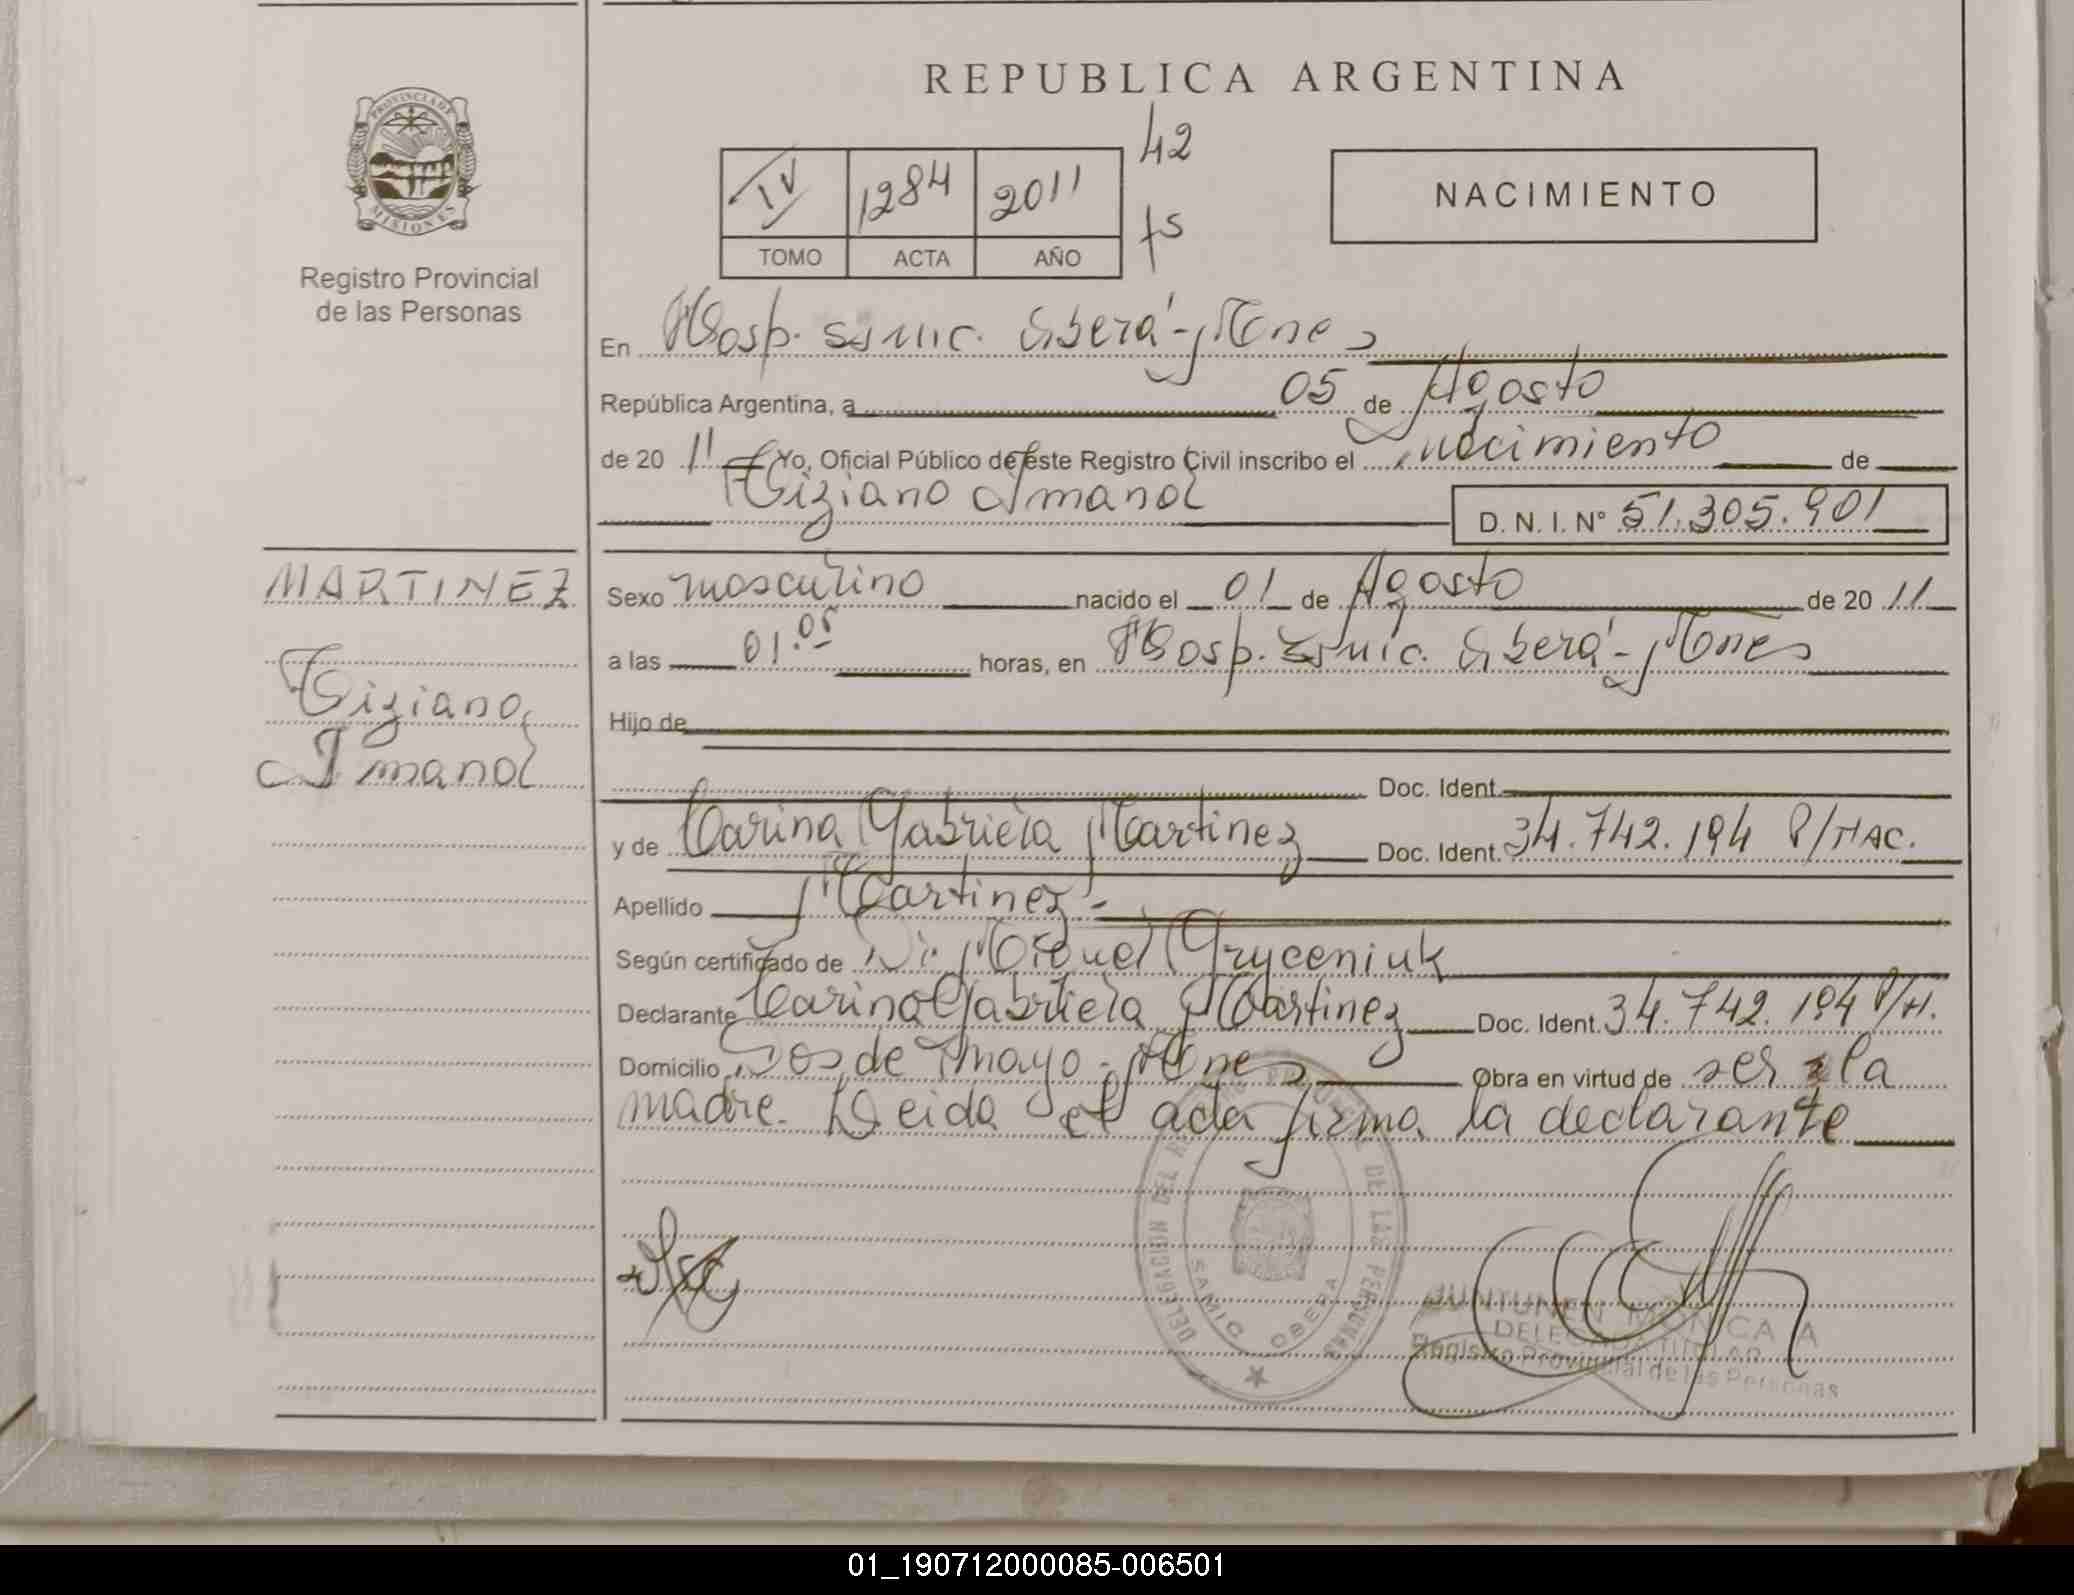 REPUBLICA ARGENTINA
PROVINCIA DE
MISIONES
Registro Provincial
de las Personas
IV 1284 2011
TOMO ACTA AÑO
42
fs
NACIMIENTO
En Hosp. Samic. Oberá - Mnes
República Argentina, a 05 de Agosto
de 20 11 Yo, Oficial Público de este Registro Civil inscribo el nacimiento de
Tiziano Imanol
D. N. I. N° 51.305.901
MARTINEZ
Tiziano
Imanol
Sexo masculino nacido el 01 de Agosto de 20 11
a las 01.05 horas, en Hosp. Samic. Oberá - Mnes
Hijo de
Doc. Ident.
y de Carina Gabriela Martinez Doc. Ident. 34.742.194 P/NAC.
Apellido Martinez -
Según certificado de Dr. Miguel Gryceniuk
Declarante Carina Gabriela Martinez Doc. Ident. 34.742.194 P/N.
Domicilio de Mayo - Mnes Obra en virtud de ser la
madre. Leida el acta firma la declarante
DELEGACION DEL REGISTRO PROVINCIAL DE LAS PERSONAS
SAMIC OBERA
JUNTUNEN MONICA A
DELEGADA TITULAR
Registro Provincial de las Personas
01_190712000085-006501